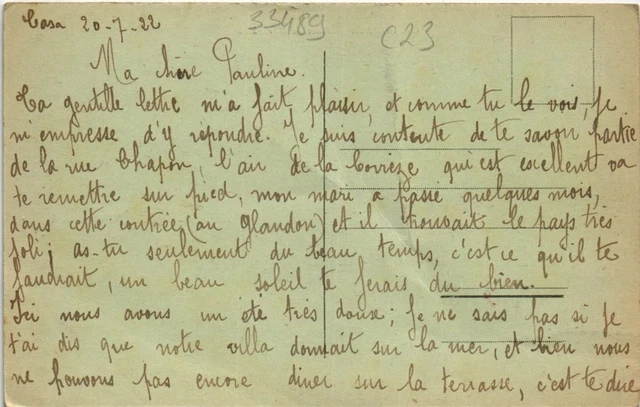 Casa 20-7-22
33489
C23
Ma chère Pauline.
Ta gentille lettre m'a fait plaisir, et comme tu le vois, je
m'empresse d'y répondre. Je suis contente de te savoir partie
de la rue Chapon, l'air de la Corrèze qui est excellent va
te remettre sur pied, mon mari a passé quelques mois,
dans cette contrée (au Glandon) et il trouvait le pays très
joli; as-tu seulement du beau temps, c'est ce qu'il te
faudrait, un beau soleil te ferais du bien.
Ici nous avons un été très doux; je ne sais pas si je
t'ai dis que notre villa donnait sur la mer, et bien nous
ne pouvons pas encore diner sur la terrasse, c'est te dire